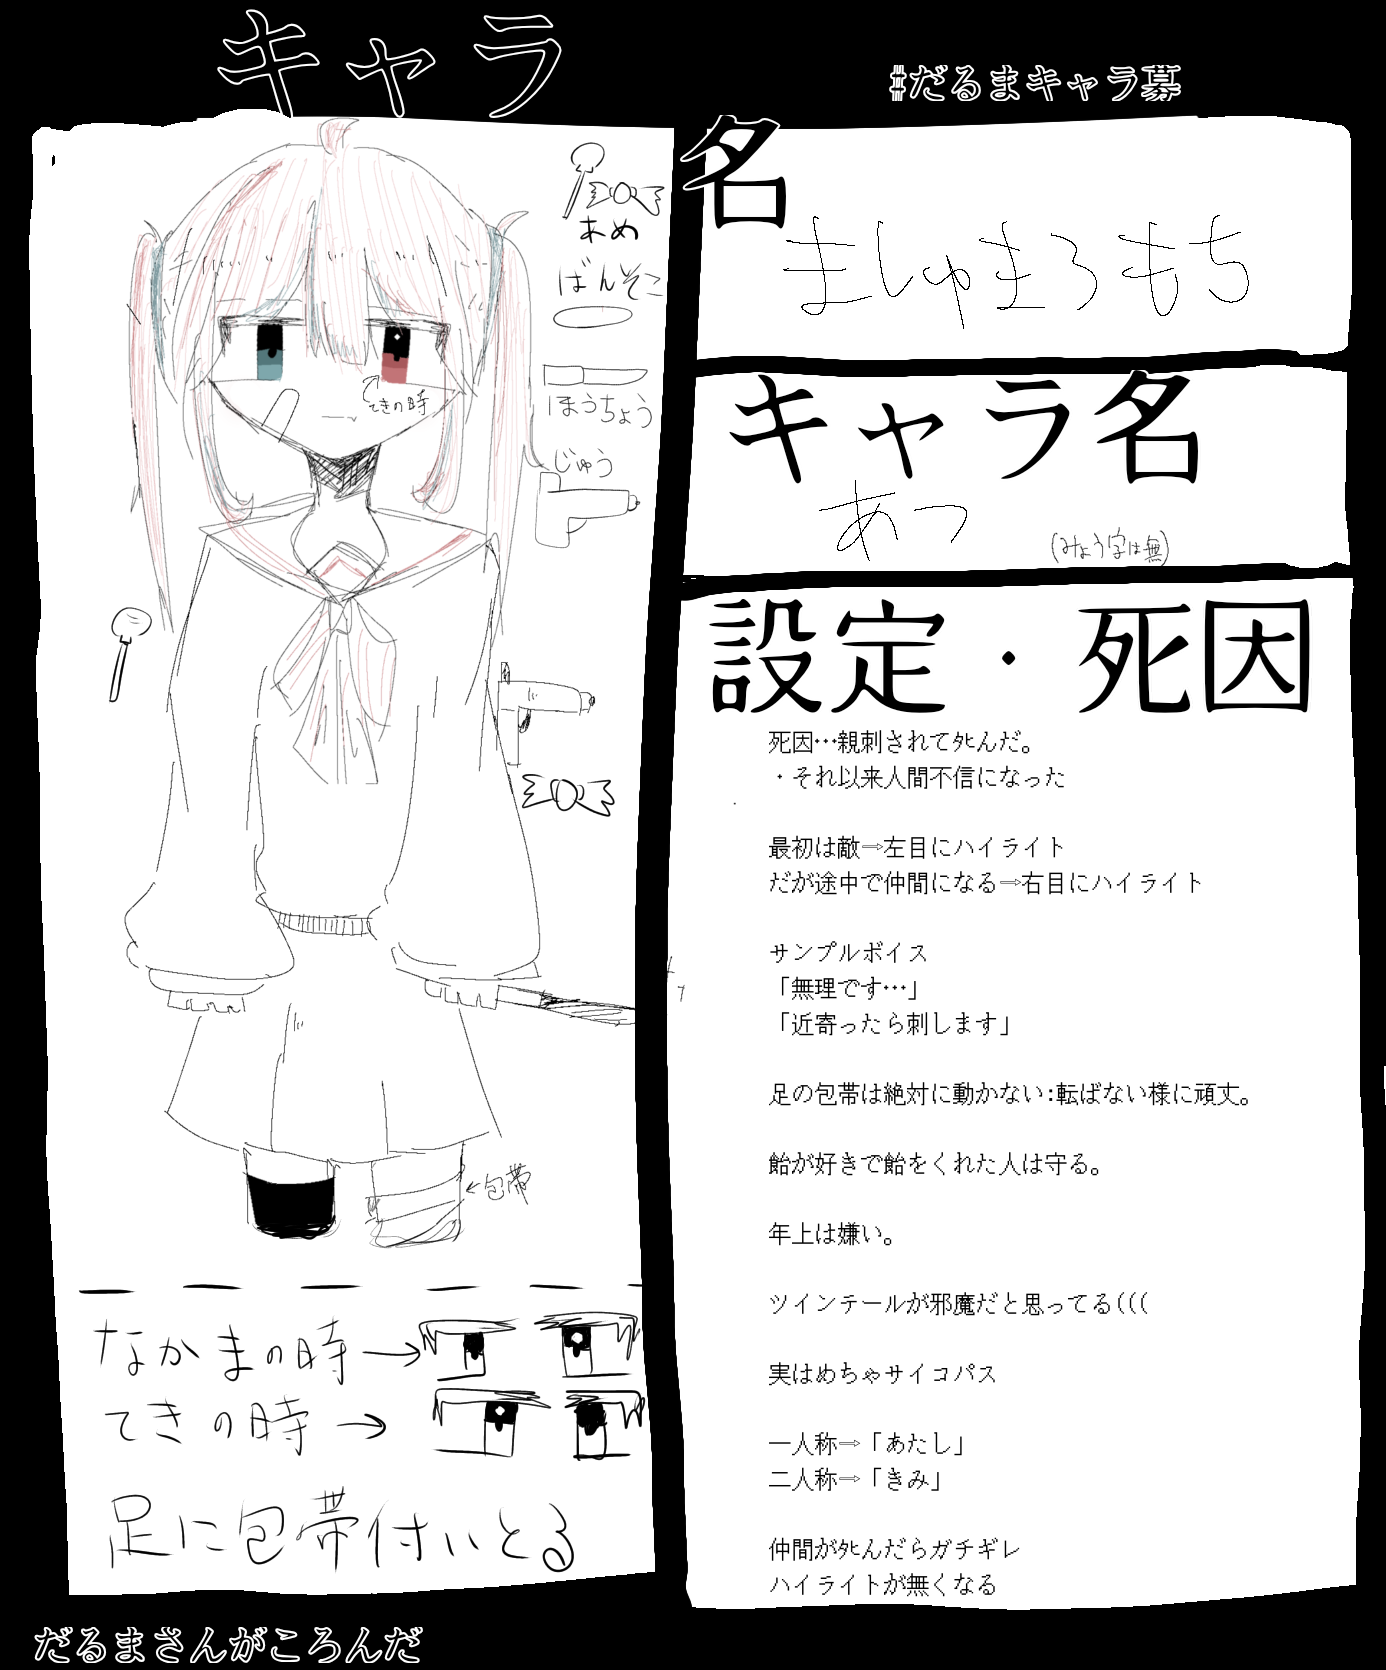 キャラ
#だるまキャラ募
あめ
ばんそこ
ほうちょう
じゅう
てきの時
←包帯
なかまの時→
てきの時→
足に包帯付いとる
だるまさんがころんだ
名
ましゅまろもち
キャラ名
あつ
(みょう字は無)
設定・死因
死因…親刺されてﾀﾋんだ。
・それ以来人間不信になった
最初は敵⇒左目にハイライト
だが途中で仲間になる⇒右目にハイライト
サンプルボイス
「無理です…」
「近寄ったら刺します」
足の包帯は絶対に動かない:転ばない様に頑丈。
飴が好きで飴をくれた人は守る。
年上は嫌い。
ツインテールが邪魔だと思ってる(((
実はめちゃサイコパス
一人称⇒「あたし」
二人称⇒「きみ」
仲間がﾀﾋんだらガチギレ
ハイライトが無くなる